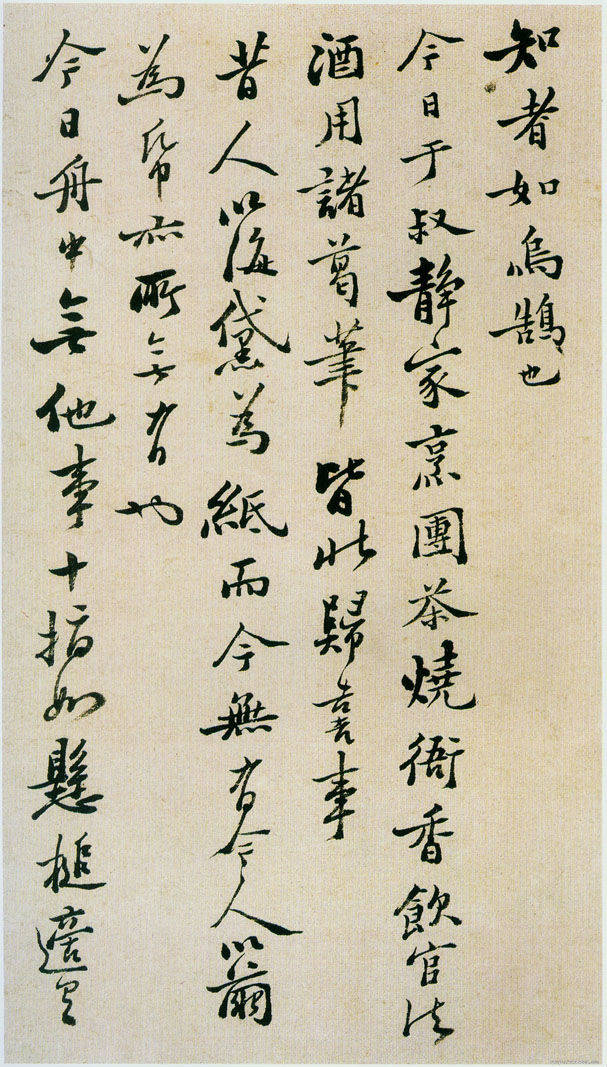 知者如鵠也
今日于叔靜家烹團茶燒衙香飲官法
酒用諸葛筆皆北歸喜事
昔人以海黛為紙而今無有今人以繭
為帋亦所無有也
今日舟中無他事十指如懸槌適